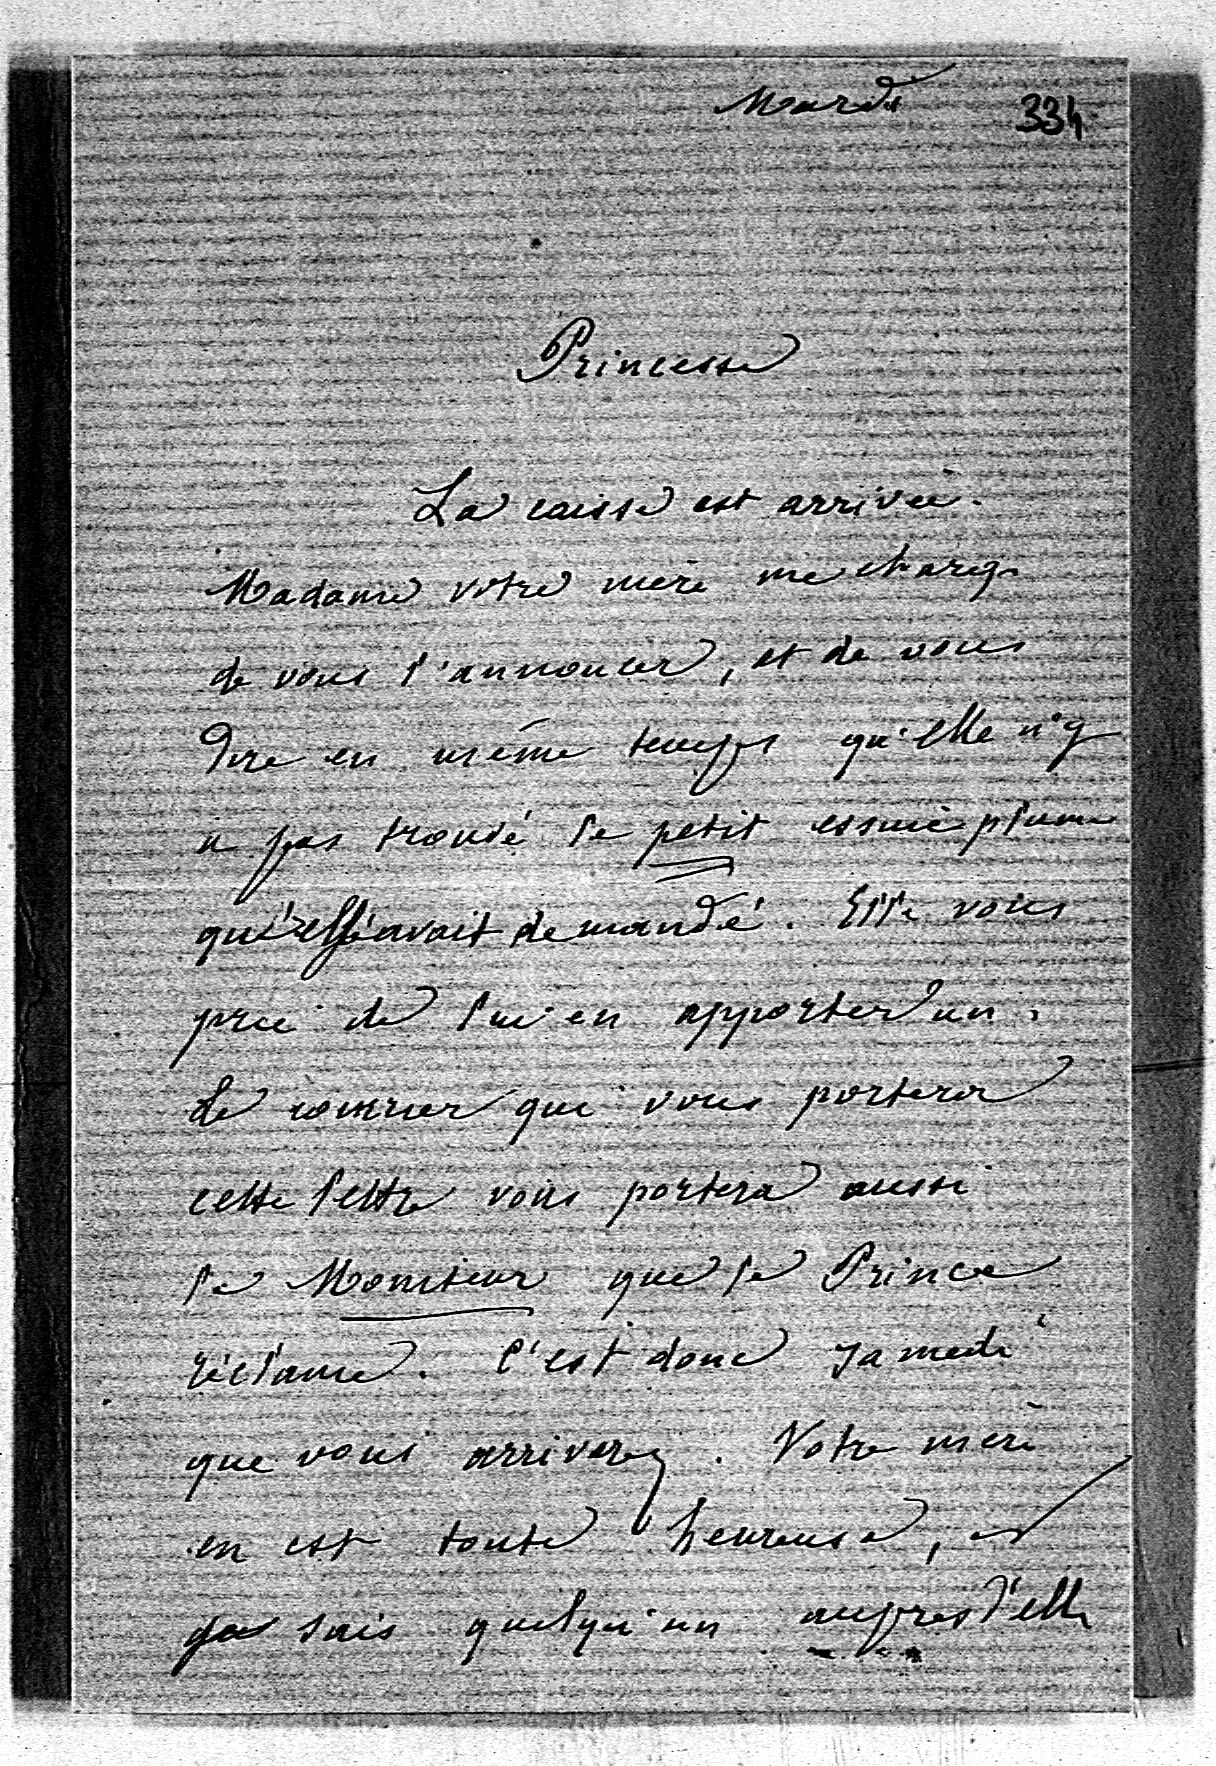 Mardi 334
Princesse
La caisse est arrivée.
Madame votre mère me charge
de vous l'annoncer, et de vous
dire en même temps qu'elle n'y
a pas trouvé le petit essuie plume
qu'elle avait demandé. Elle vous
prie de lui en apporter un.
Le courrier qui vous portera
cette lettre vous portera aussi
le Moniteur que le Prince
réclame. C'est donc samedi
que vous arriverez. Votre mère
en est toute heureuse, et
je sais quelqu'un auprès d'elle